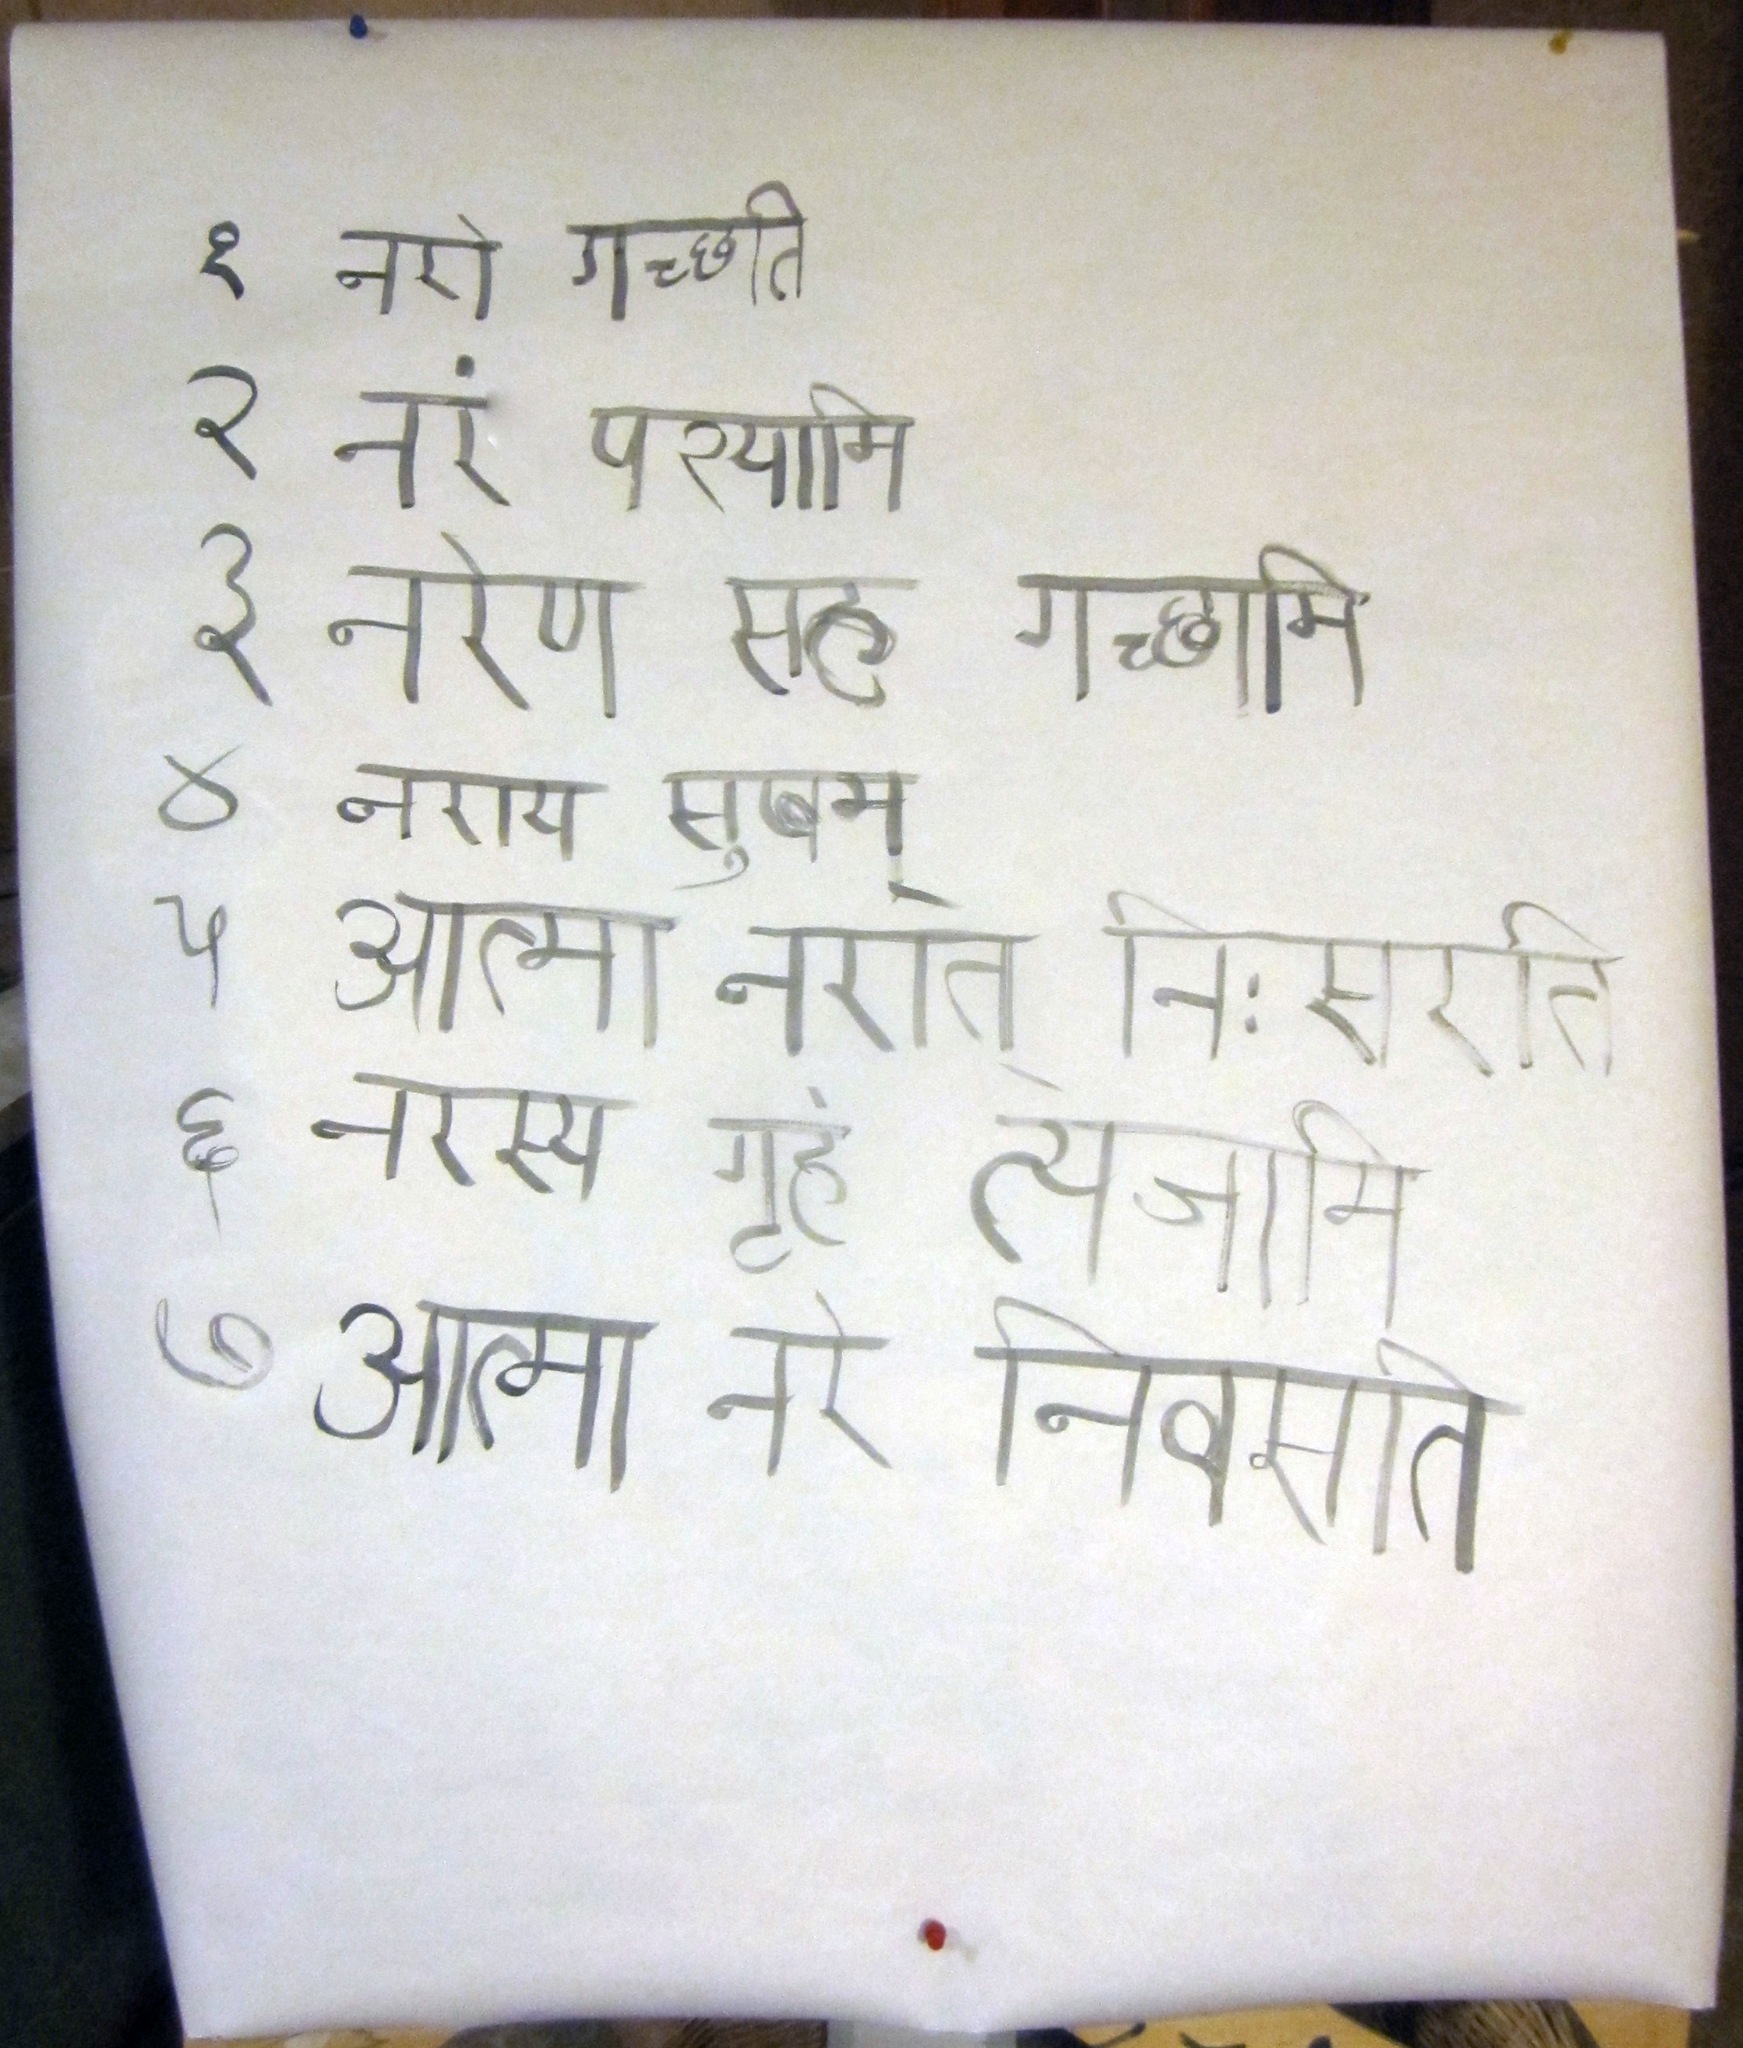 १ नरो गच्छति
२ नरं पश्यामि
३ नरेण सह गच्छामि
४ नराय सुखम्
५ आत्मा नरात् निःसरति
६ नरस्य गृहं त्यजामि
७ आत्मा नरे निवसति